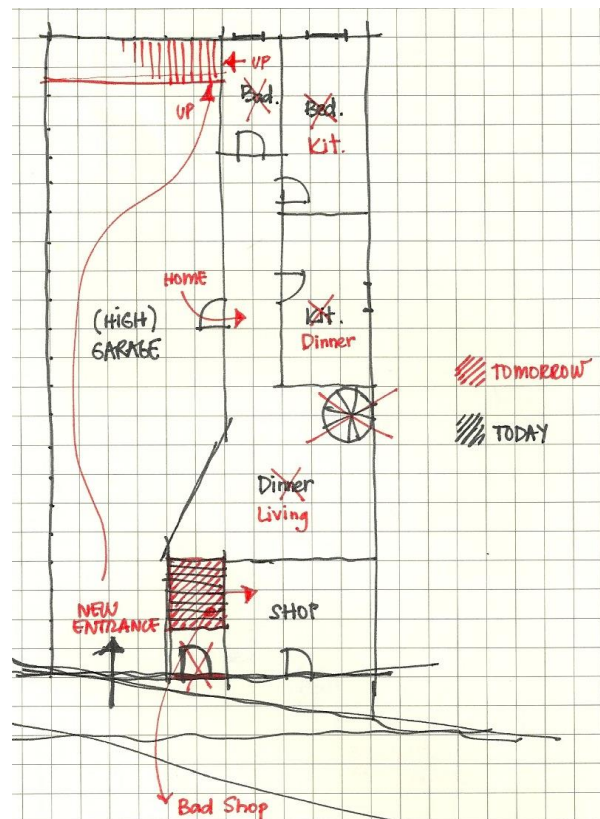 UP
UP
Bad.
Bed.
Kit.
HOME
(HIGH)
GARAGE
Kit.
Dinner
TOMORROW
TODAY
Dinner
Living
NEW
ENTRANCE
SHOP
Bad Shop